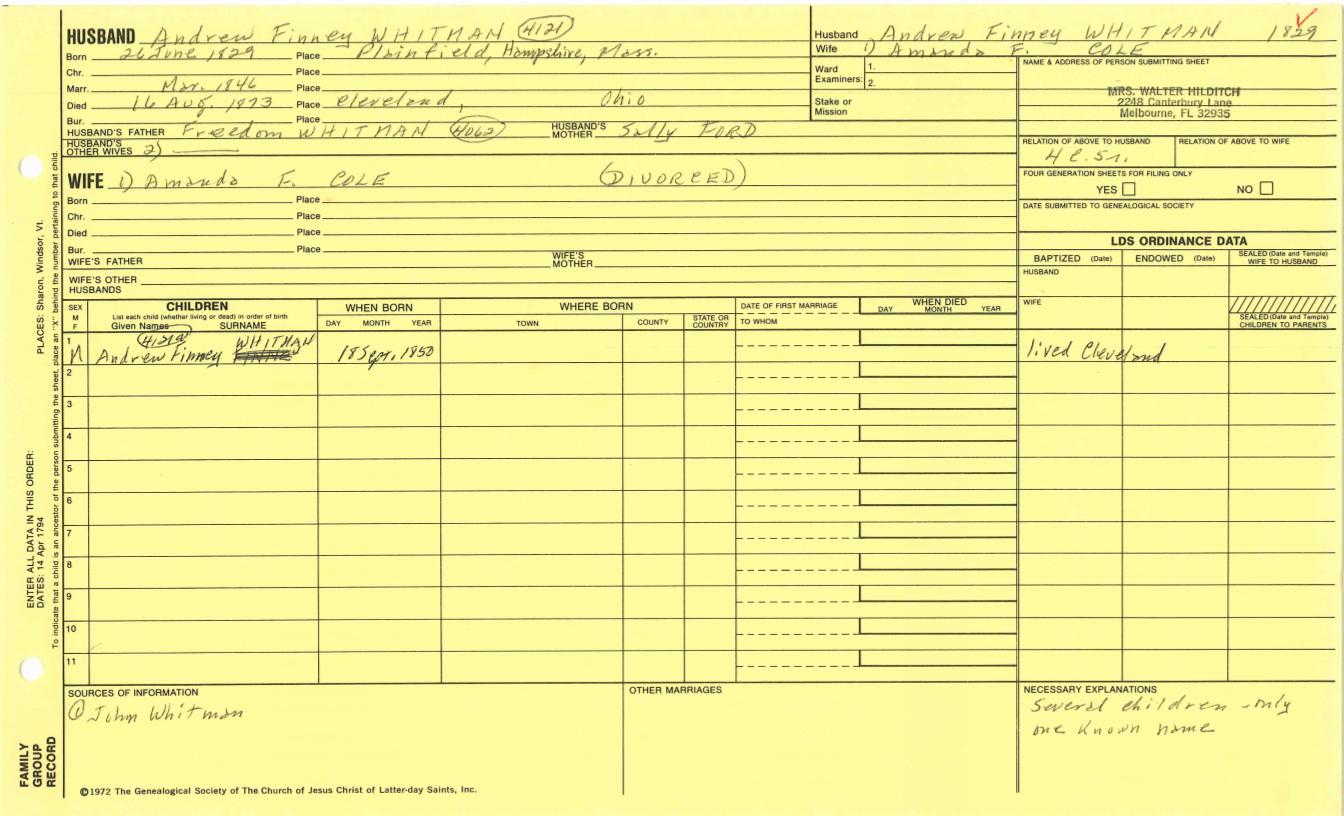 HUSBAND Andrew Finney WHITMAN 4121
Born 26 June 1829 Place Plainfield, Hampshire, Mass.
Chr. Place
Marr. Mar. 1846 Place
Died 16 Aug. 1873 Place Cleveland, Ohio
Bur. Place
HUSBAND'S FATHER Freedom WHITMAN 4062 HUSBAND'S MOTHER Sally FORD
HUSBAND'S OTHER WIVES 2)
WIFE 1) Amanda F. COLE (DIVORCED)
Born Place
Chr. Place
Died Place
Bur. Place
WIFE'S FATHER WIFE'S MOTHER
WIFE'S OTHER HUSBANDS
Husband Andrew, Finney WHITMAN 1829
Wife 1) Amanda F. COLE
Ward Examiners: 1. 2.
Stake or Mission
NAME & ADDRESS OF PERSON SUBMITTING SHEET
MRS. WALTER HILDITCH
2248 Canterbury Lane
Melbourne, FL 32935
RELATION OF ABOVE TO HUSBAND RELATION OF ABOVE TO WIFE
FOUR GENERATION SHEETS FOR FILING ONLY
YES NO
DATE SUBMITTED TO GENEALOGICAL SOCIETY
LDS ORDINANCE DATA
BAPTIZED (Date) ENDOWED (Date) SEALED (Date and Temple) WIFE TO HUSBAND
HUSBAND
WIFE
SEALED (Date and Temple) CHILDREN TO PARENTS
SEX M F
CHILDREN
List each child (whether living or dead) in order of birth
Given Names SURNAME
WHEN BORN
DAY MONTH YEAR
WHERE BORN
TOWN COUNTY STATE OR COUNTRY
DATE OF FIRST MARRIAGE
TO WHOM
WHEN DIED
DAY MONTH YEAR
1 M Andrew Finney WHITMAN 18 Sept. 1850 lived Cleveland
2
3
4
5
6
7
8
9
10
11
SOURCES OF INFORMATION
① John Whitman
OTHER MARRIAGES
NECESSARY EXPLANATIONS
Several children - only
one known name
©1972 The Genealogical Society of The Church of Jesus Christ of Latter-day Saints, Inc.
FAMILY
GROUP
RECORD
ENTER ALL DATA IN THIS ORDER:
DATES: 14 Apr 1794 PLACES: Sharon, Windsor, Vt.
To indicate that a child is an ancestor of the person submitting the sheet, place an "X" behind the number pertaining to that child.